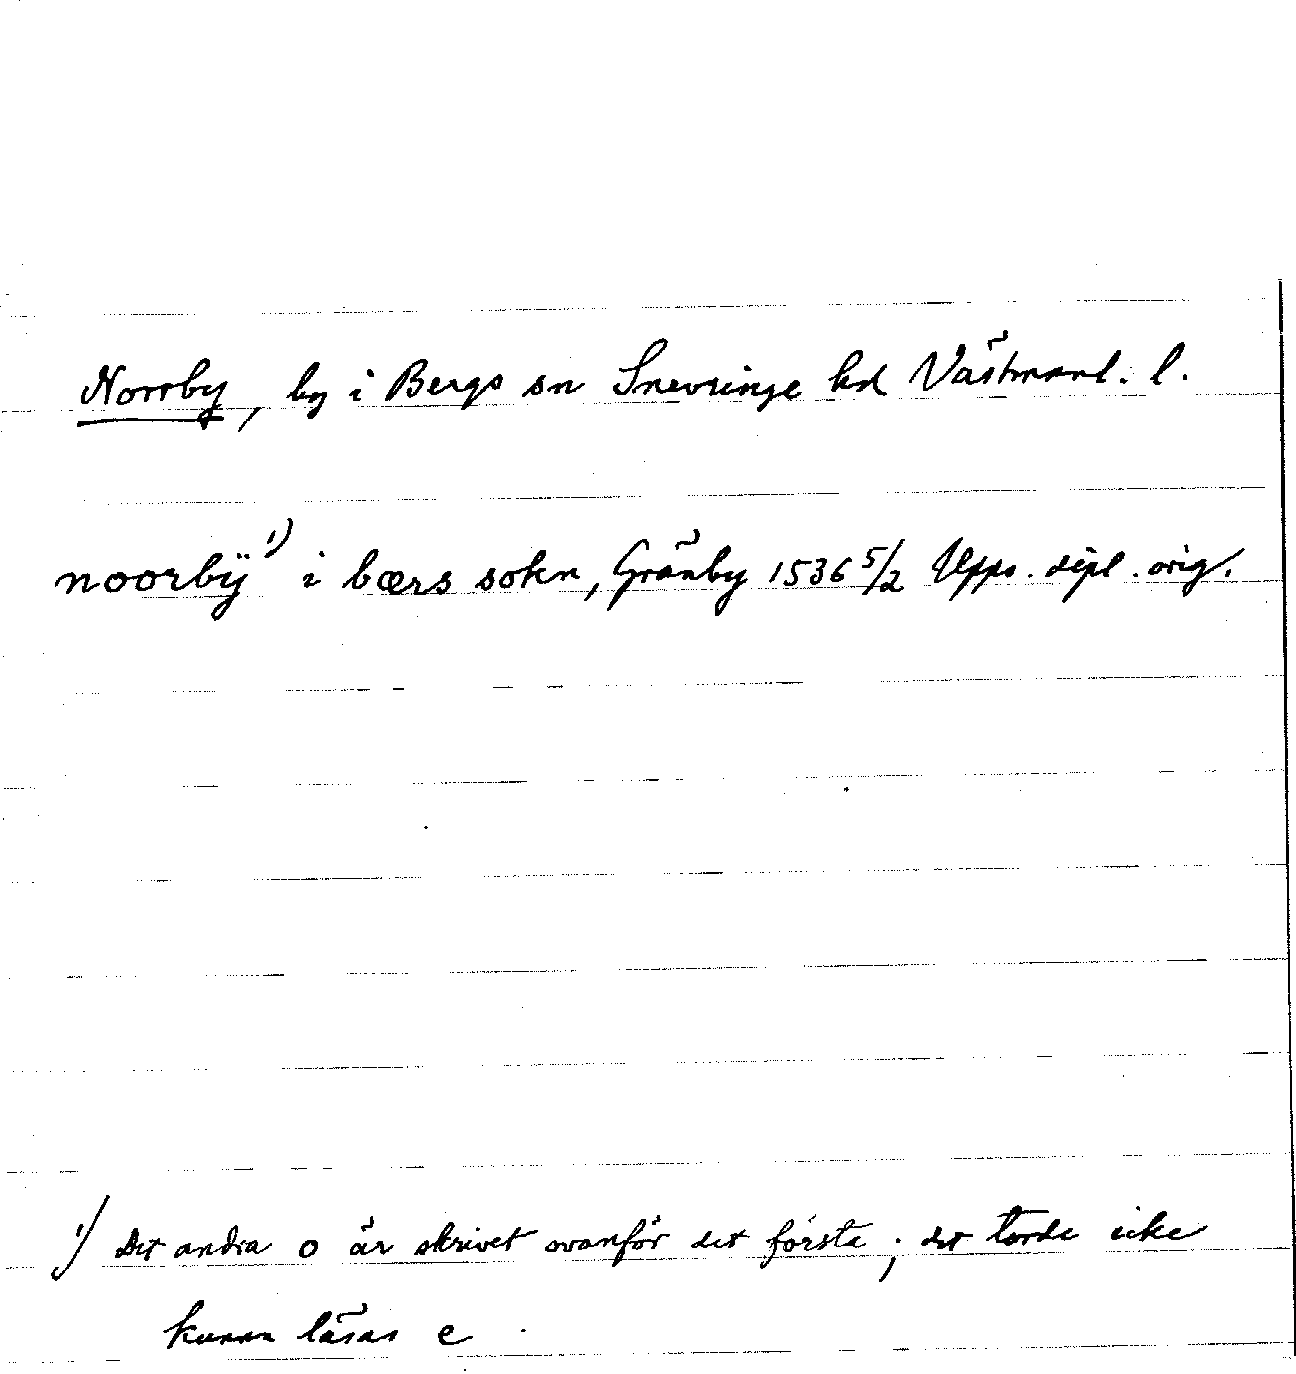 Norrby, by i Bergs sn Snevringe hd Västmanl. l.
noorbÿ 1) i bærs sokn, Gränby 1536 5/2 Upps. dipl. orig.
1) Det andra o är skrivet ovanför det första; det torde icke
kunna läsas e.